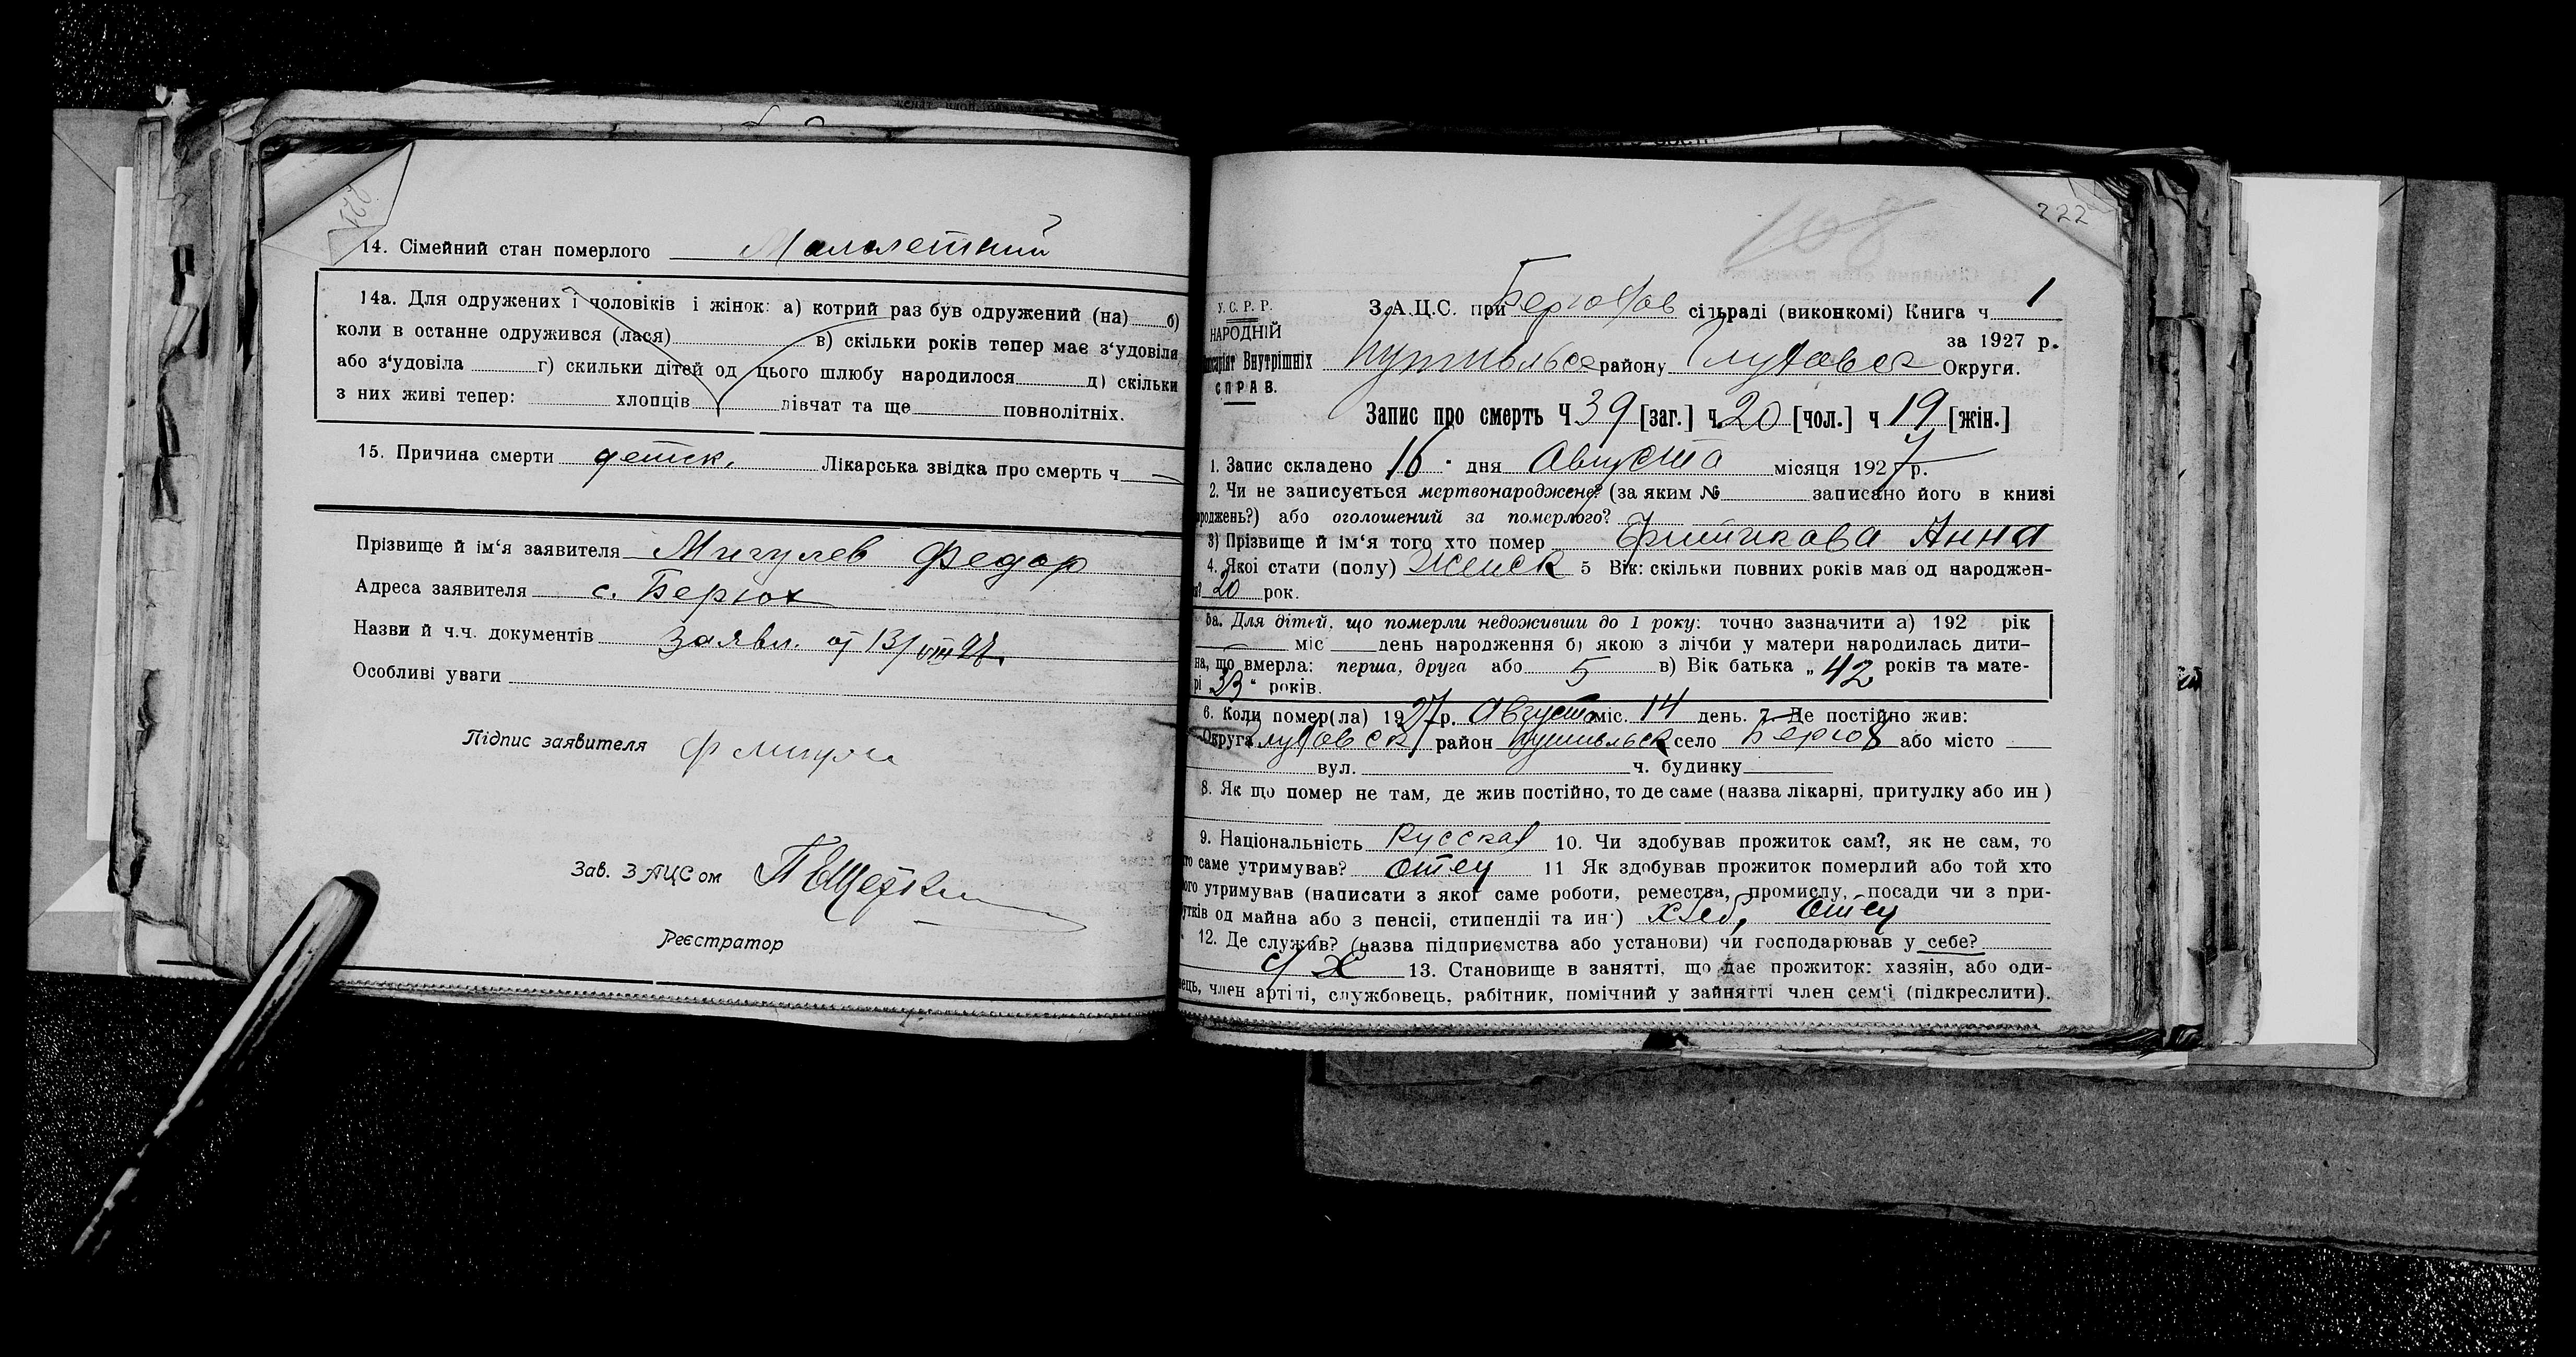 221
14. Сімейний стан померлого Малолетний
14а. Для одружених і чоловіків і жінок: а) котрий раз був одружений (на) б)
коли в останне одружився (лася) в) скільки років тепер має з‘удовіла
або з‘удовіла г) скильки дітей од цього шлюбу народилося д) скільки
з них живі тепер: хлопців дівчат та ще повнолітніх.
15. Причина смерти детск. Лікарська звідка про смерть ч —
Прізвище й ім‘я заявителя Мигулев Федор
Адреса заявителя с. Берюх
Назви й ч.ч. документів Заявл. от 13/VIII 27.
Особливі уваги
Підпис заявителя Ф
Зав. ЗАЦСом
Реєстратор
108
222
У.С.Р.Р.
НАРОДНІЙ
Внутрішніх
СПРАВ.
З.А.Ц.С. при Берюхов сільраді (виконкомі) Книга ч. 1
за 1927 р.
Путивльск району Глуховск Округи.
Запис про смерть Ч 39 [заг.] ч. 20 [чол.] ч 19 [жін.]
1. Запис складено 16 дня Августа місяця 1927 р.
2. Чи не записується мертвонароджене? (за яким № записано його в книзі
роджень?) або оголошений за померлого?
3) Прізвище й ім‘я того хто помер Анна
4. Якої стати (полу) Женск 5 Вік: скільки повних років мав од народжен-
20 рок.
5а. Для дітей, що померли недоживши до 1 року: точно зазначити а) 192 рік
міс день народження б) якою з лічби у матери народилась дити-
на, що вмерла: перша, друга або 5 в) Вік батька „ 42 років та мате-
рі „33“ років.
6. Коли помер(ла) 1927 р. Августа міс. 14 день. 7. Де постійно жив:
Округа Глуховск район Путивльск село Берюх або місто —
вул. ч. будинку
8. Як що помер не там, де жив постійно, то де саме (назва лікарні, притулку або ин)
9. Національність Русская 10. Чи здобував прожиток сам?, як не сам, то
хто саме утримував? отец 11 Як здобував прожиток померлий або той хто
його утримував (написати з якої саме роботи, ремества, промислу, посади чи з при-
утків од майна або з пенсії, стипендії та ин·) хлеб, отец
12. Де служив? (назва підприємства або установи) чи господарював у себе?
с/х 13. Становище в занятті, що дає прожиток: хазяін, або оди-
нець, член артілі, службовець, рабітник, помічний у зайнятті член сем‘ї (підкреслити).